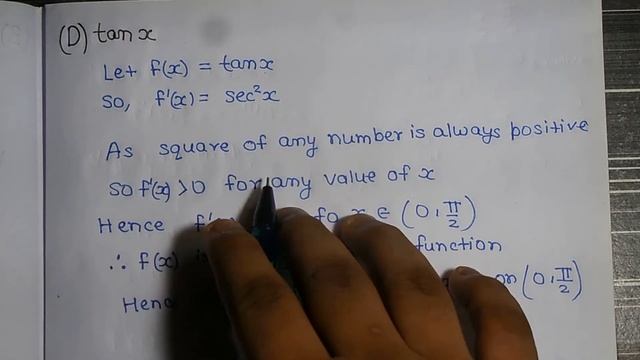 (D) tan x
Let f(x) = tan x
so, f'(x) = sec²x
As square of any number is always positive
so f'(x) > 0 for any value of x
Hence f' fo x ∈ (0, π/2)
∴ f(x) function
Hen on (0, π/2)